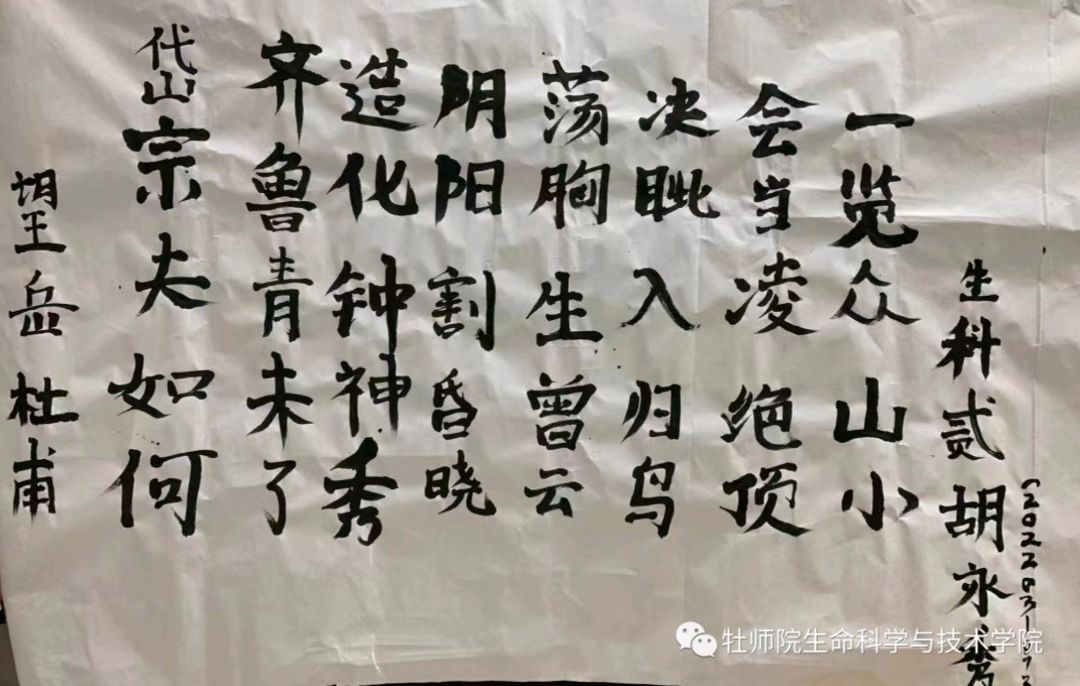 望岳 杜甫
岱宗夫如何
齐鲁青未了
造化钟神秀
阴阳割昏晓
荡胸生曾云
决眦入归鸟
会当凌绝顶
一览众山小
生科贰 胡永秀
牡师院生命科学与技术学院